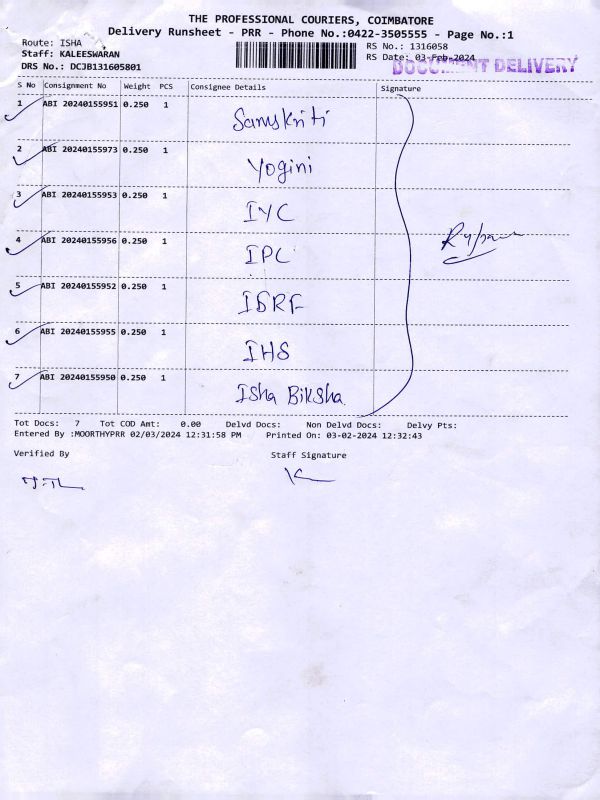 THE PROFESSIONAL COURIERS, COIMBATORE
Delivery Runsheet - PRR - Phone No.:0422-3505555 - Page No.:1
Route: ISHA
Staff: KALEESWARAN
DRS No.: DCJB131605801
RS No.: 1316058
RS Date: 03-Feb-2024
DOCUMENT DELIVERY
S No Consignment No Weight PCS Consignee Details Signature
1 ABI 20240155951 0.250 1 Samskriti
2 ABI 20240155973 0.250 1 Yogini
3 ABI 20240155953 0.250 1 IYC
4 ABI 20240155956 0.250 1 IPC
5 ABI 20240155952 0.250 1 ISRF
6 ABI 20240155955 0.250 1 IHS
7 ABI 20240155950 0.250 1 Isha Biksha
Tot Docs: 7 Tot COD Amt: 0.00 Delvd Docs: Non Delvd Docs: Delvy Pts:
Entered By :MOORTHYPRR 02/03/2024 12:31:58 PM Printed On: 03-02-2024 12:32:43
Verified By Staff Signature